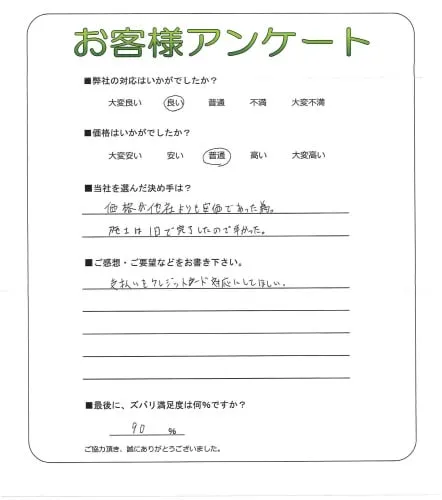 お客様アンケート
■弊社の対応はいかがでしたか?
大変良い 良い 普通 不満 大変不満
■価格はいかがでしたか?
大変安い 安い 普通 高い 大変高い
■当社を選んだ決め手は?
価格が他社よりも安価であった為。
施工は1日で完了したので早かった。
■ご感想・ご要望などをお書き下さい。
支払いもクレジットカード対応にしてほしい。
■最後に、ズバリ満足度は何%ですか?
90 %
ご協力頂き、誠にありがとうございました。